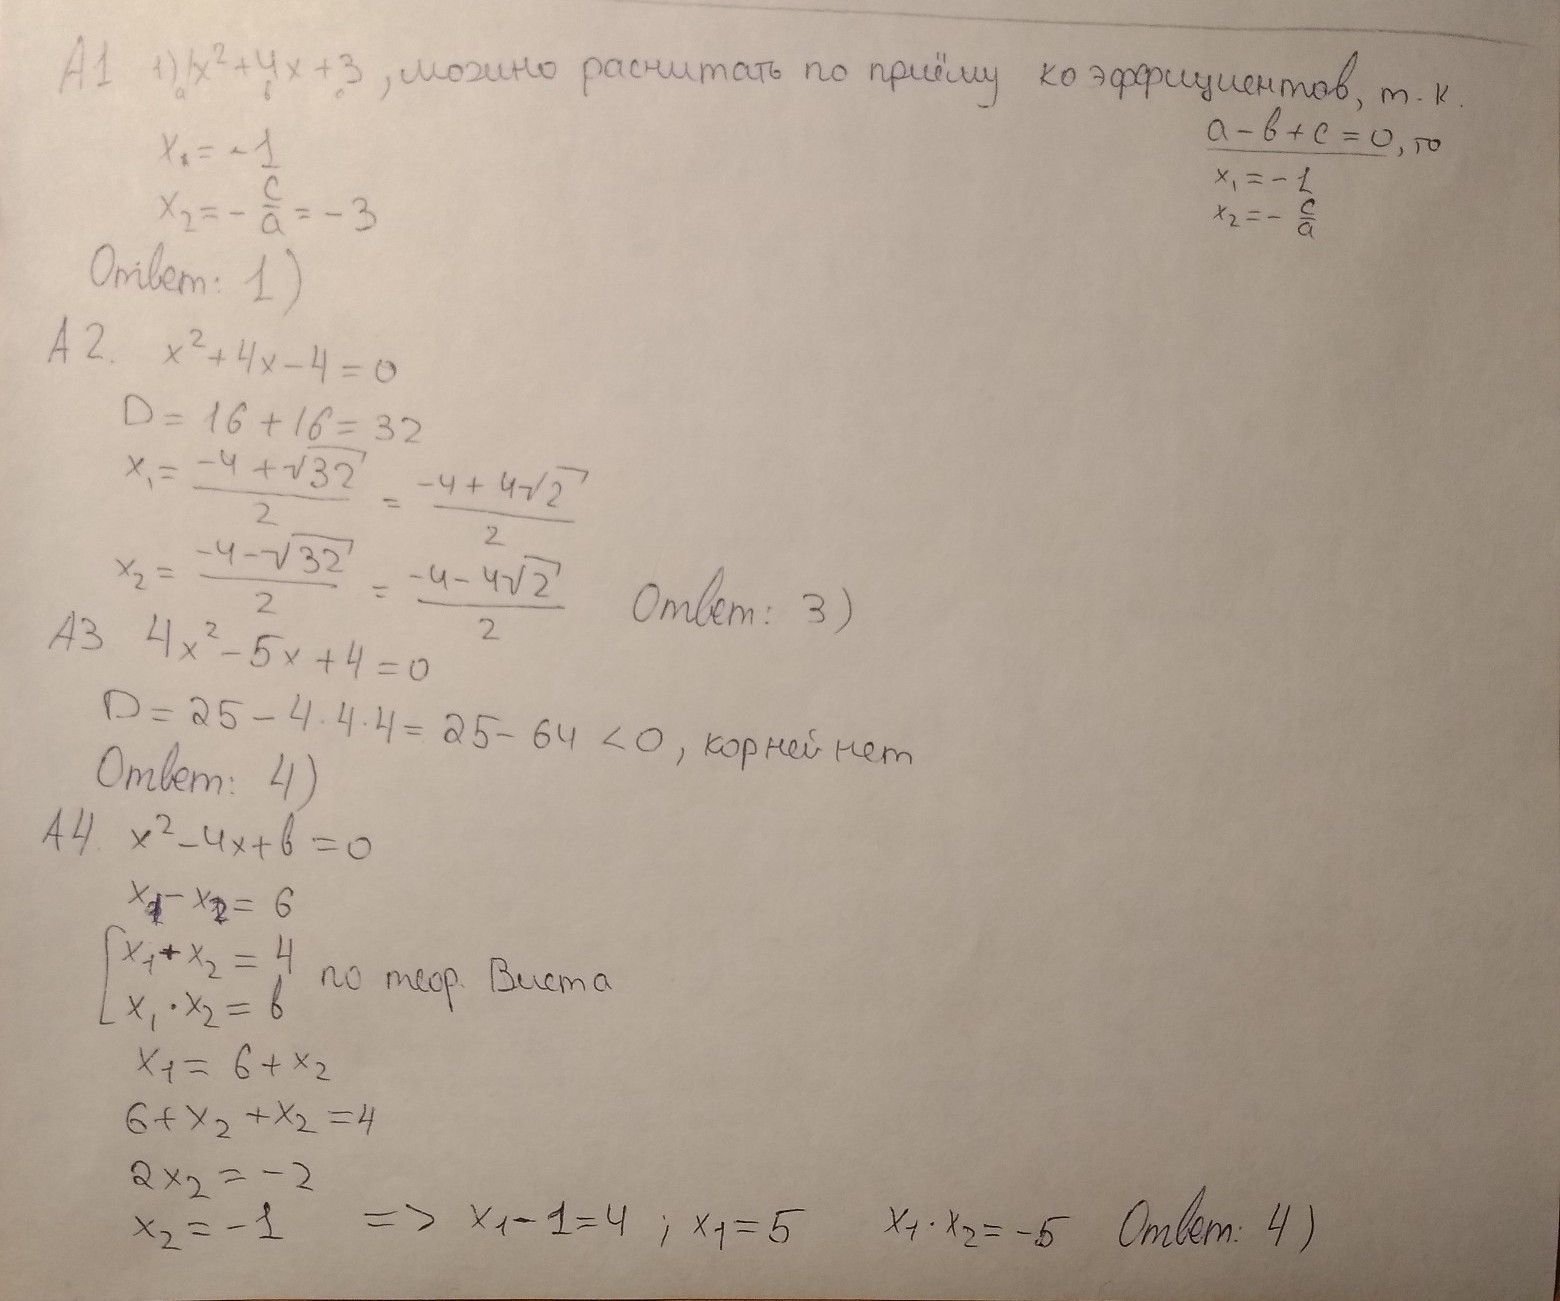 А1 1) 1x²+4x+3, можно расчитать по приёму коэффициентов, т.к.
a в c
a-в+c=0, то
x₁=-1
x₂=-c/a
x₁=-1
x₂=-c/a=-3
Ответ: 1)
А2. x²+4x-4=0
D=16+16=32
x₁=(-4+√32)/2=(-4+4√2)/2
x₂=(-4-√32)/2=(-4-4√2)/2 Ответ: 3)
А3 4x²-5x+4=0
D=25-4·4·4=25-64<0, корней нет
Ответ: 4)
А4. x²-4x+в=0
x₁-x₂=6
[x₁+x₂=4
x₁·x₂=в по теор. Виета
x₁=6+x₂
6+x₂+x₂=4
2x₂=-2
x₂=-1 => x₁-1=4; x₁=5 x₁·x₂=-5 Ответ: 4)